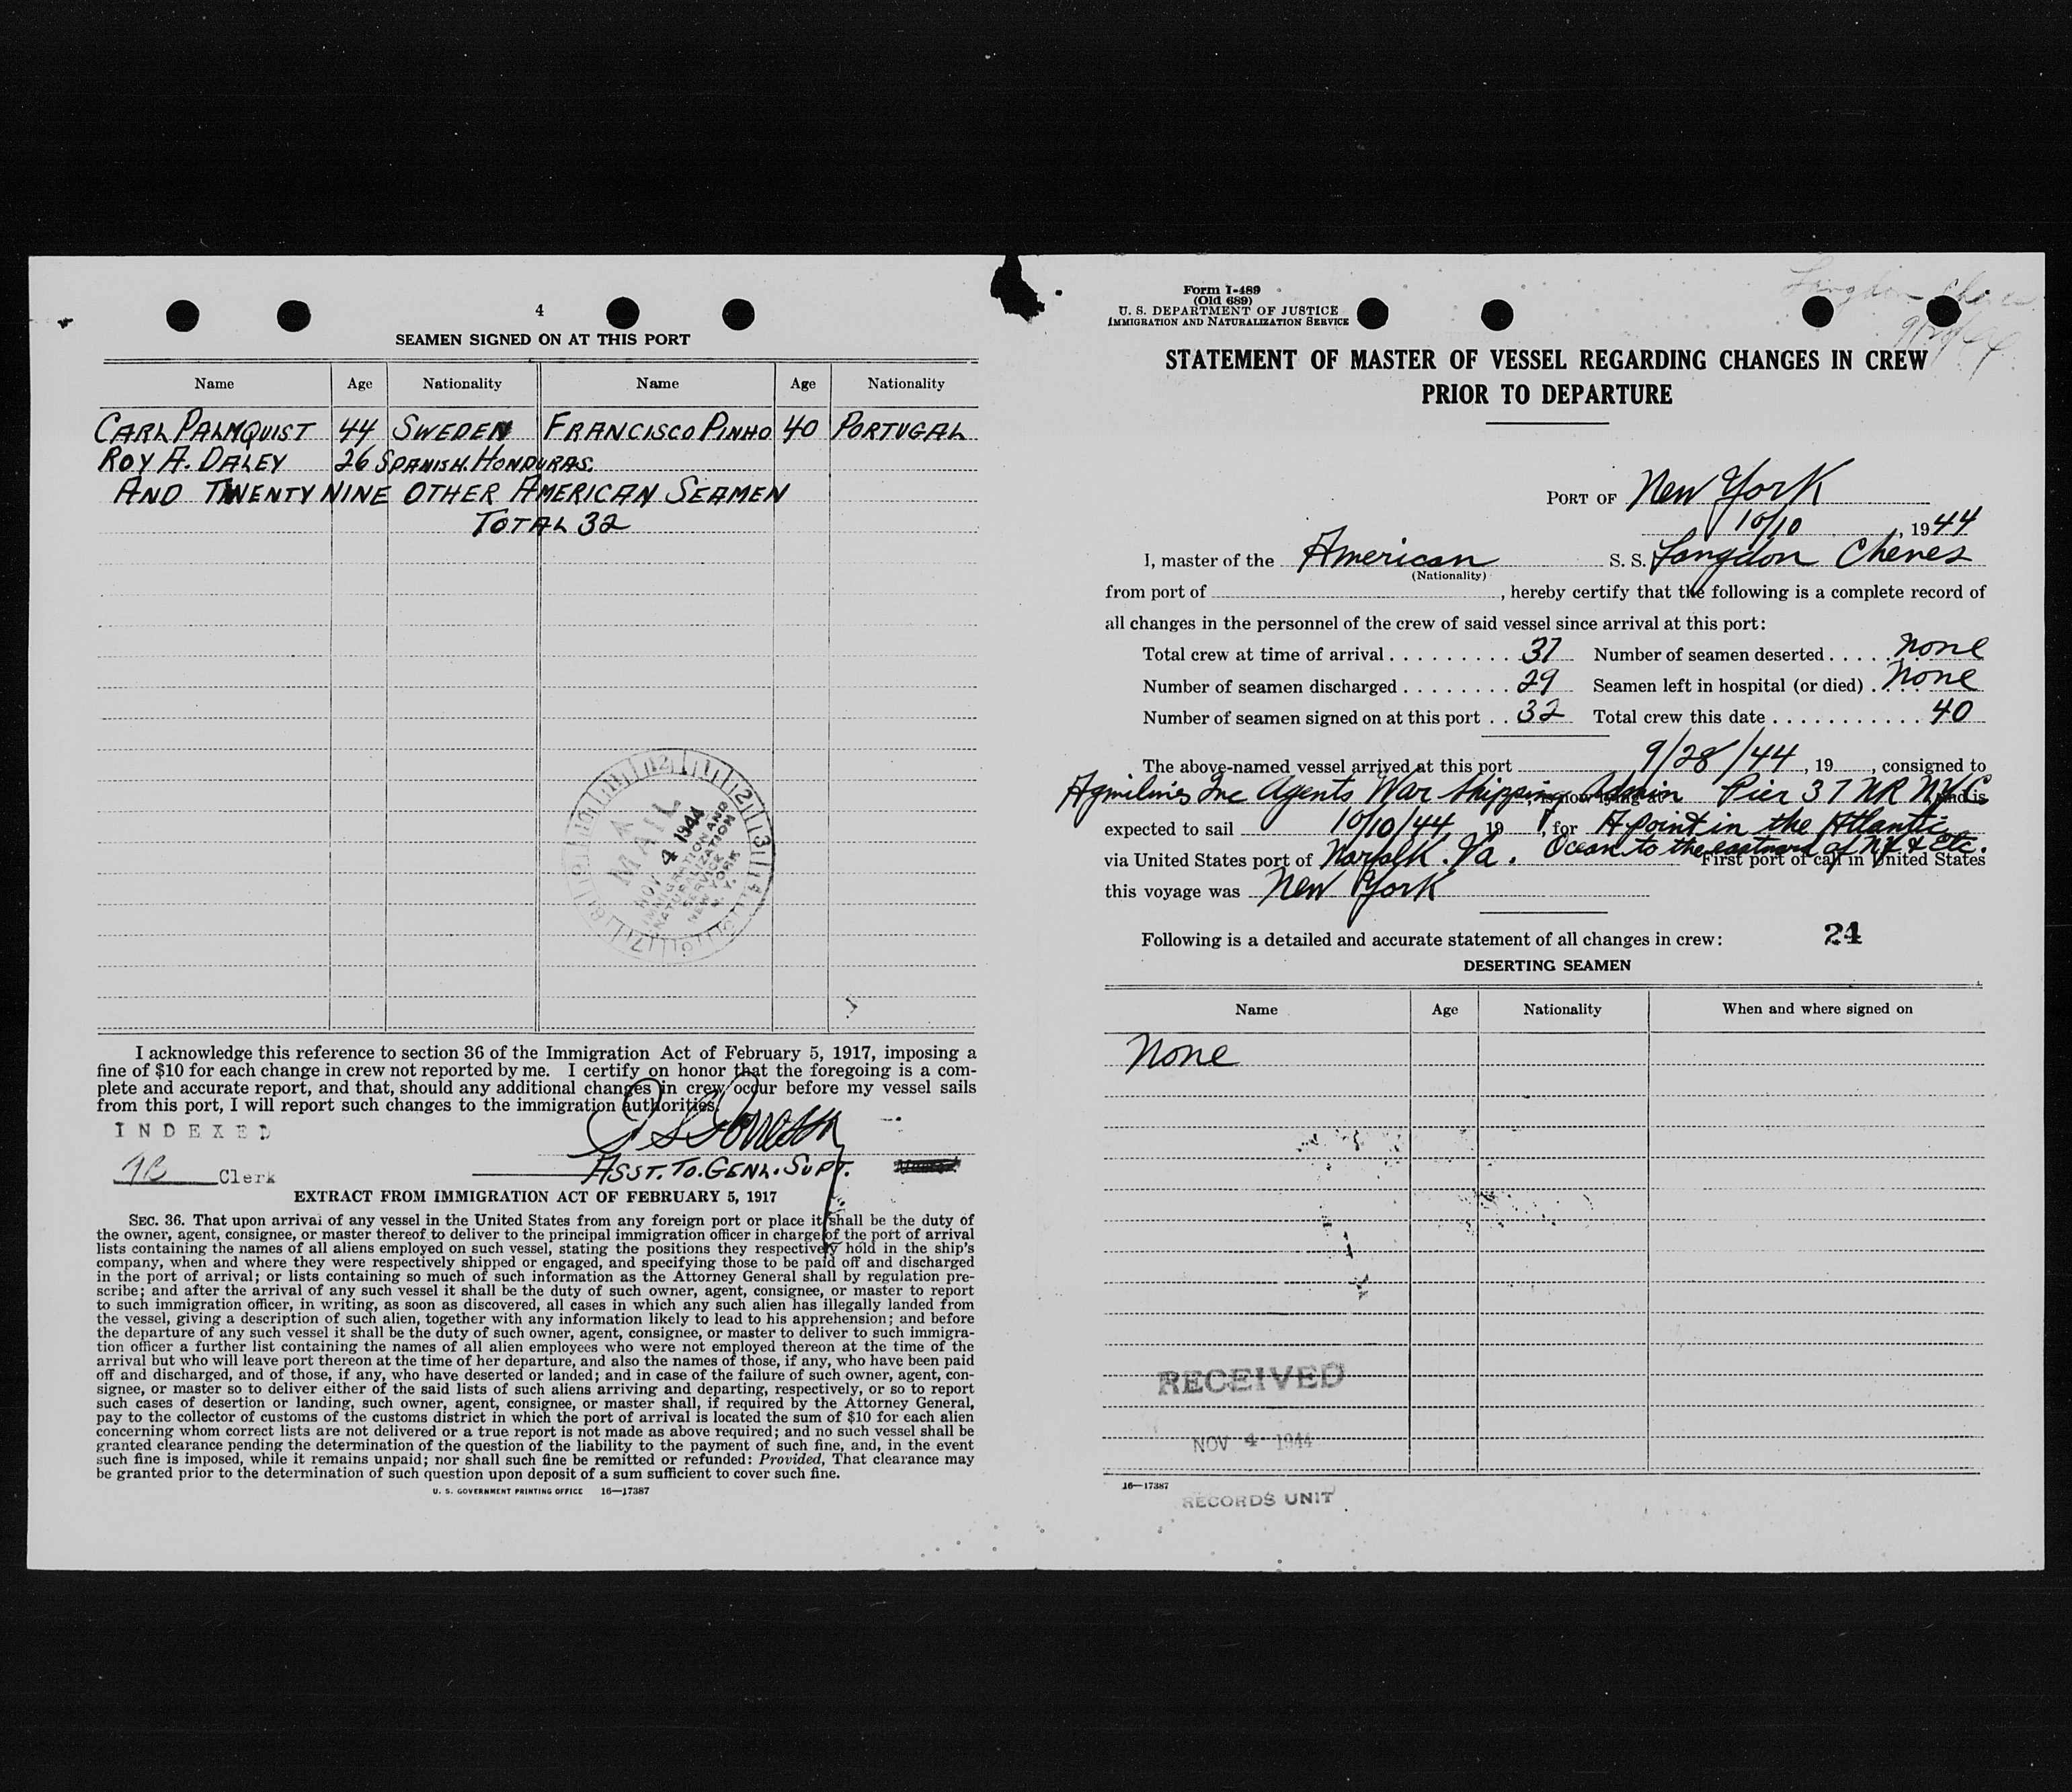 4
SEAMEN SIGNED ON AT THIS PORT
Name Age Nationality Name Age Nationality
CARL PALMQUIST 44 SWEDEN FRANCISCO PINHO 40 PORTUGAL
ROY A. DALEY 26 SPANISH. HONDURAS.
AND TWENTY NINE OTHER AMERICAN SEAMEN
TOTAL 32
A MAIL
NOV 4 1944
IMMIGRATION AND
NATURALIZATION
SERVICE
NEW YORK
N. Y.
I acknowledge this reference to section 36 of the Immigration Act of February 5, 1917, imposing a
fine of $10 for each change in crew not reported by me. I certify on honor that the foregoing is a com-
plete and accurate report, and that, should any additional changes in crew occur before my vessel sails
from this port, I will report such changes to the immigration authorities.
INDEXED
ASST. TO. GENL. SUPT.
Clerk
EXTRACT FROM IMMIGRATION ACT OF FEBRUARY 5, 1917
SEC. 36. That upon arrival of any vessel in the United States from any foreign port or place it shall be the duty of
the owner, agent, consignee, or master thereof to deliver to the principal immigration officer in charge of the port of arrival
lists containing the names of all aliens employed on such vessel, stating the positions they respectively hold in the ship's
company, when and where they were respectively shipped or engaged, and specifying those to be paid off and discharged
in the port of arrival; or lists containing so much of such information as the Attorney General shall by regulation pre-
scribe; and after the arrival of any such vessel it shall be the duty of such owner, agent, consignee, or master to report
to such immigration officer, in writing, as soon as discovered, all cases in which any such alien has illegally landed from
the vessel, giving a description of such alien, together with any information likely to lead to his apprehension; and before
the departure of any such vessel it shall be the duty of such owner, agent, consignee, or master to deliver to such immigra-
tion officer a further list containing the names of all alien employees who were not employed thereon at the time of the
arrival but who will leave port thereon at the time of her departure, and also the names of those, if any, who have been paid
off and discharged, and of those, if any, who have deserted or landed; and in case of the failure of such owner, agent, con-
signee, or master so to deliver either of the said lists of such aliens arriving and departing, respectively, or so to report
such cases of desertion or landing, such owner, agent, consignee, or master shall, if required by the Attorney General,
pay to the collector of customs of the customs district in which the port of arrival is located the sum of $10 for each alien
concerning whom correct lists are not delivered or a true report is not made as above required; and no such vessel shall be
granted clearance pending the determination of the question of the liability to the payment of such fine, and, in the event
such fine is imposed, while it remains unpaid; nor shall such fine be remitted or refunded: Provided, That clearance may
be granted prior to the determination of such question upon deposit of a sum sufficient to cover such fine.
U. S. GOVERNMENT PRINTING OFFICE 16—17387
Form I-489
(Old 689)
U. S. DEPARTMENT OF JUSTICE
IMMIGRATION AND NATURALIZATION SERVICE
Langdon Cheves
STATEMENT OF MASTER OF VESSEL REGARDING CHANGES IN CREW
PRIOR TO DEPARTURE
PORT OF New York
10/10, 1944
I, master of the American S. S. Langdon Cheves
(Nationality)
from port of , hereby certify that the following is a complete record of
all changes in the personnel of the crew of said vessel since arrival at this port:
Total crew at time of arrival . . . . . . . . . . 37 Number of seamen deserted . . . . . None
Number of seamen discharged . . . . . . . . 29 Seamen left in hospital (or died) . None
Number of seamen signed on at this port . . 32 Total crew this date . . . . . . . . . . . . 40
The above-named vessel arrived at this port 9/28/44, 19 , consigned to
Agwilines Inc Agents War Shipping Admin , is now lying at Pier 37 NR NYC and is
expected to sail 10/10/44 19 , for A point in the Atlantic
Ocean to the eastward of NY & Etc.
via United States port of Norfolk. Va. First port of call in United States
this voyage was New York
Following is a detailed and accurate statement of all changes in crew: 24
DESERTING SEAMEN
Name Age Nationality When and where signed on
None
RECEIVED
NOV 4 1944
16—17387
RECORDS UNIT